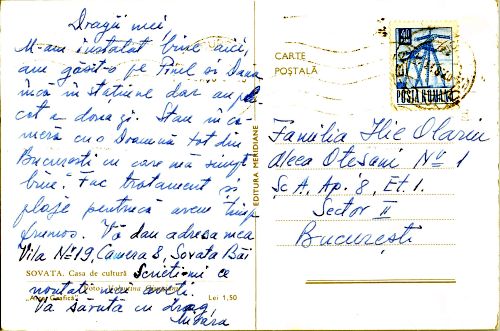 Dragii mei,
M-am instalat bine aici,
am găsit-o pe Pinel și Dana
încă în stațiune dar au ple
cat a doua zi. Stau în ca
meră cu o Doamnă tot din
București cu care mă simt
bine. Fac tratament și
plaje pentrucă avem timp
frumos. Vă dau adresa mea
Vila No 19, Camera 8, Sovata Băi
SOVATA. Casa de cultură
Scrieți-mi ce
noutăți mai aveți.
Vă sărută cu drag
"Arta Grafică"
Lei 1,50
EDITURA MERIDIANE
CARTE
POȘTALĂ
40
POSTA ROMANA
Familia Ilie Olariu
Aleea Otesani No 1
Sc A, Ap. 8, Et. 1.
Sector II
București